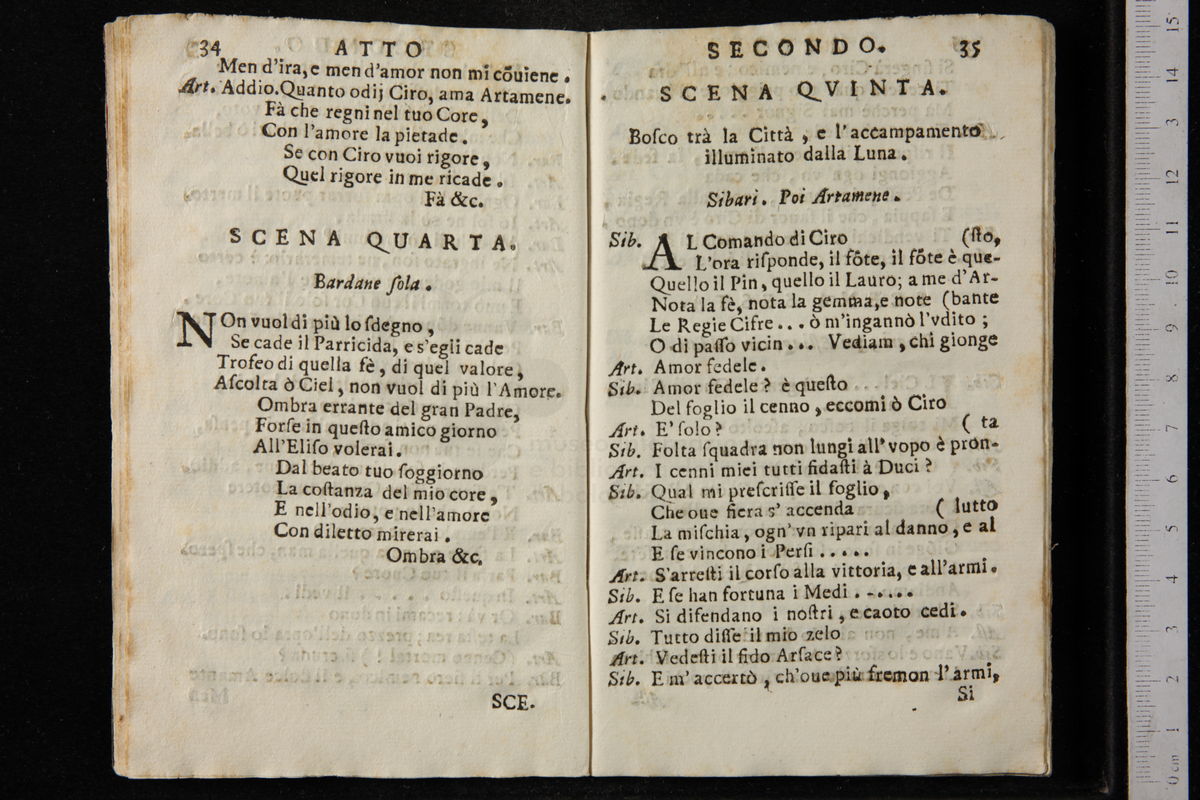 34 ATTO
Men d'ira, e men d'amor non mi cōuiene.
Art. Addio. Quanto odij Ciro, ama Artamene.
Fà che regni nel tuo Core,
Con l'amore la pietade.
Se con Ciro vuoi rigore,
Quel rigore in me ricade.
Fà &c.
SCENA QUARTA.
Bardane ſola.
NOn vuol di più lo ſdegno,
Se cade il Parricida, e s'egli cade
Trofeo di quella fè, di quel valore,
Aſcolta ò Ciel, non vuol di più l'Amore.
Ombra errante del gran Padre,
Forſe in queſto amico giorno
All'Eliſo volerai.
Dal beato tuo ſoggiorno
La coſtanza del mio core,
E nell'odio, e nell'amore
Con diletto mirerai.
Ombra &c.
SCE.
SECONDO. 35
SCENA QVINTA.
Boſco trà la Città, e l'accampamento
illuminato dalla Luna.
Sibari. Poi Artamene.
Sib. AL Comando di Ciro (ſto,
L'ora riſponde, il fōte, il fōte è que-
Quello il Pin, quello il Lauro; a me d'Ar-
Nota la fè, nota la gemma, e note (bante
Le Regie Cifre... ò m'ingannò l'vdito;
O di paſſo vicin... Vediam, chi gionge
Art. Amor fedele.
Sib. Amor fedele? è queſto
Del foglio il cenno, eccomi ò Ciro
Art. E' ſolo? ( ta
Sib. Folta ſquadra non lungi all' vopo è pron-
Art. I cenni miei tutti fidaſti à Duci?
Sib. Qual mi preſcriſſe il foglio,
Che oue fiera s' accenda ( lutto
La miſchia, ogn' vn ripari al danno, e al
E ſe vincono i Perſi.....
Art. S'arreſti il corſo alla vittoria, e all'armi.
Sib. E ſe han fortuna i Medi.-....
Art. Si difendano i noſtri, e caoto cedi.
Sib. Tutto diſſe il mio zelo
Art. Vedeſti il fido Arſace?
Sib. E m' accertò, ch'oue più fremon l'armi,
Si